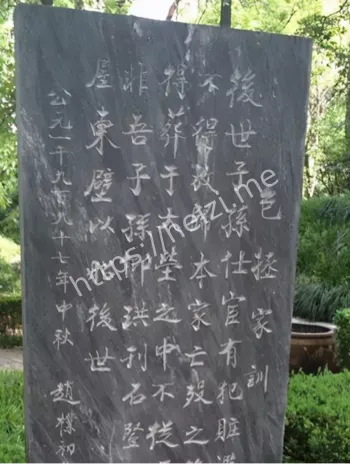 包拯家訓
後世子孫仕宦有犯贓濫
不得放歸本家亡歿之
得葬于大塋之中不從
非吾子孫仰珙刊石竪
屋東壁以後世
公元一千九百九十七年中秋 趙樸初
https://heizi.me